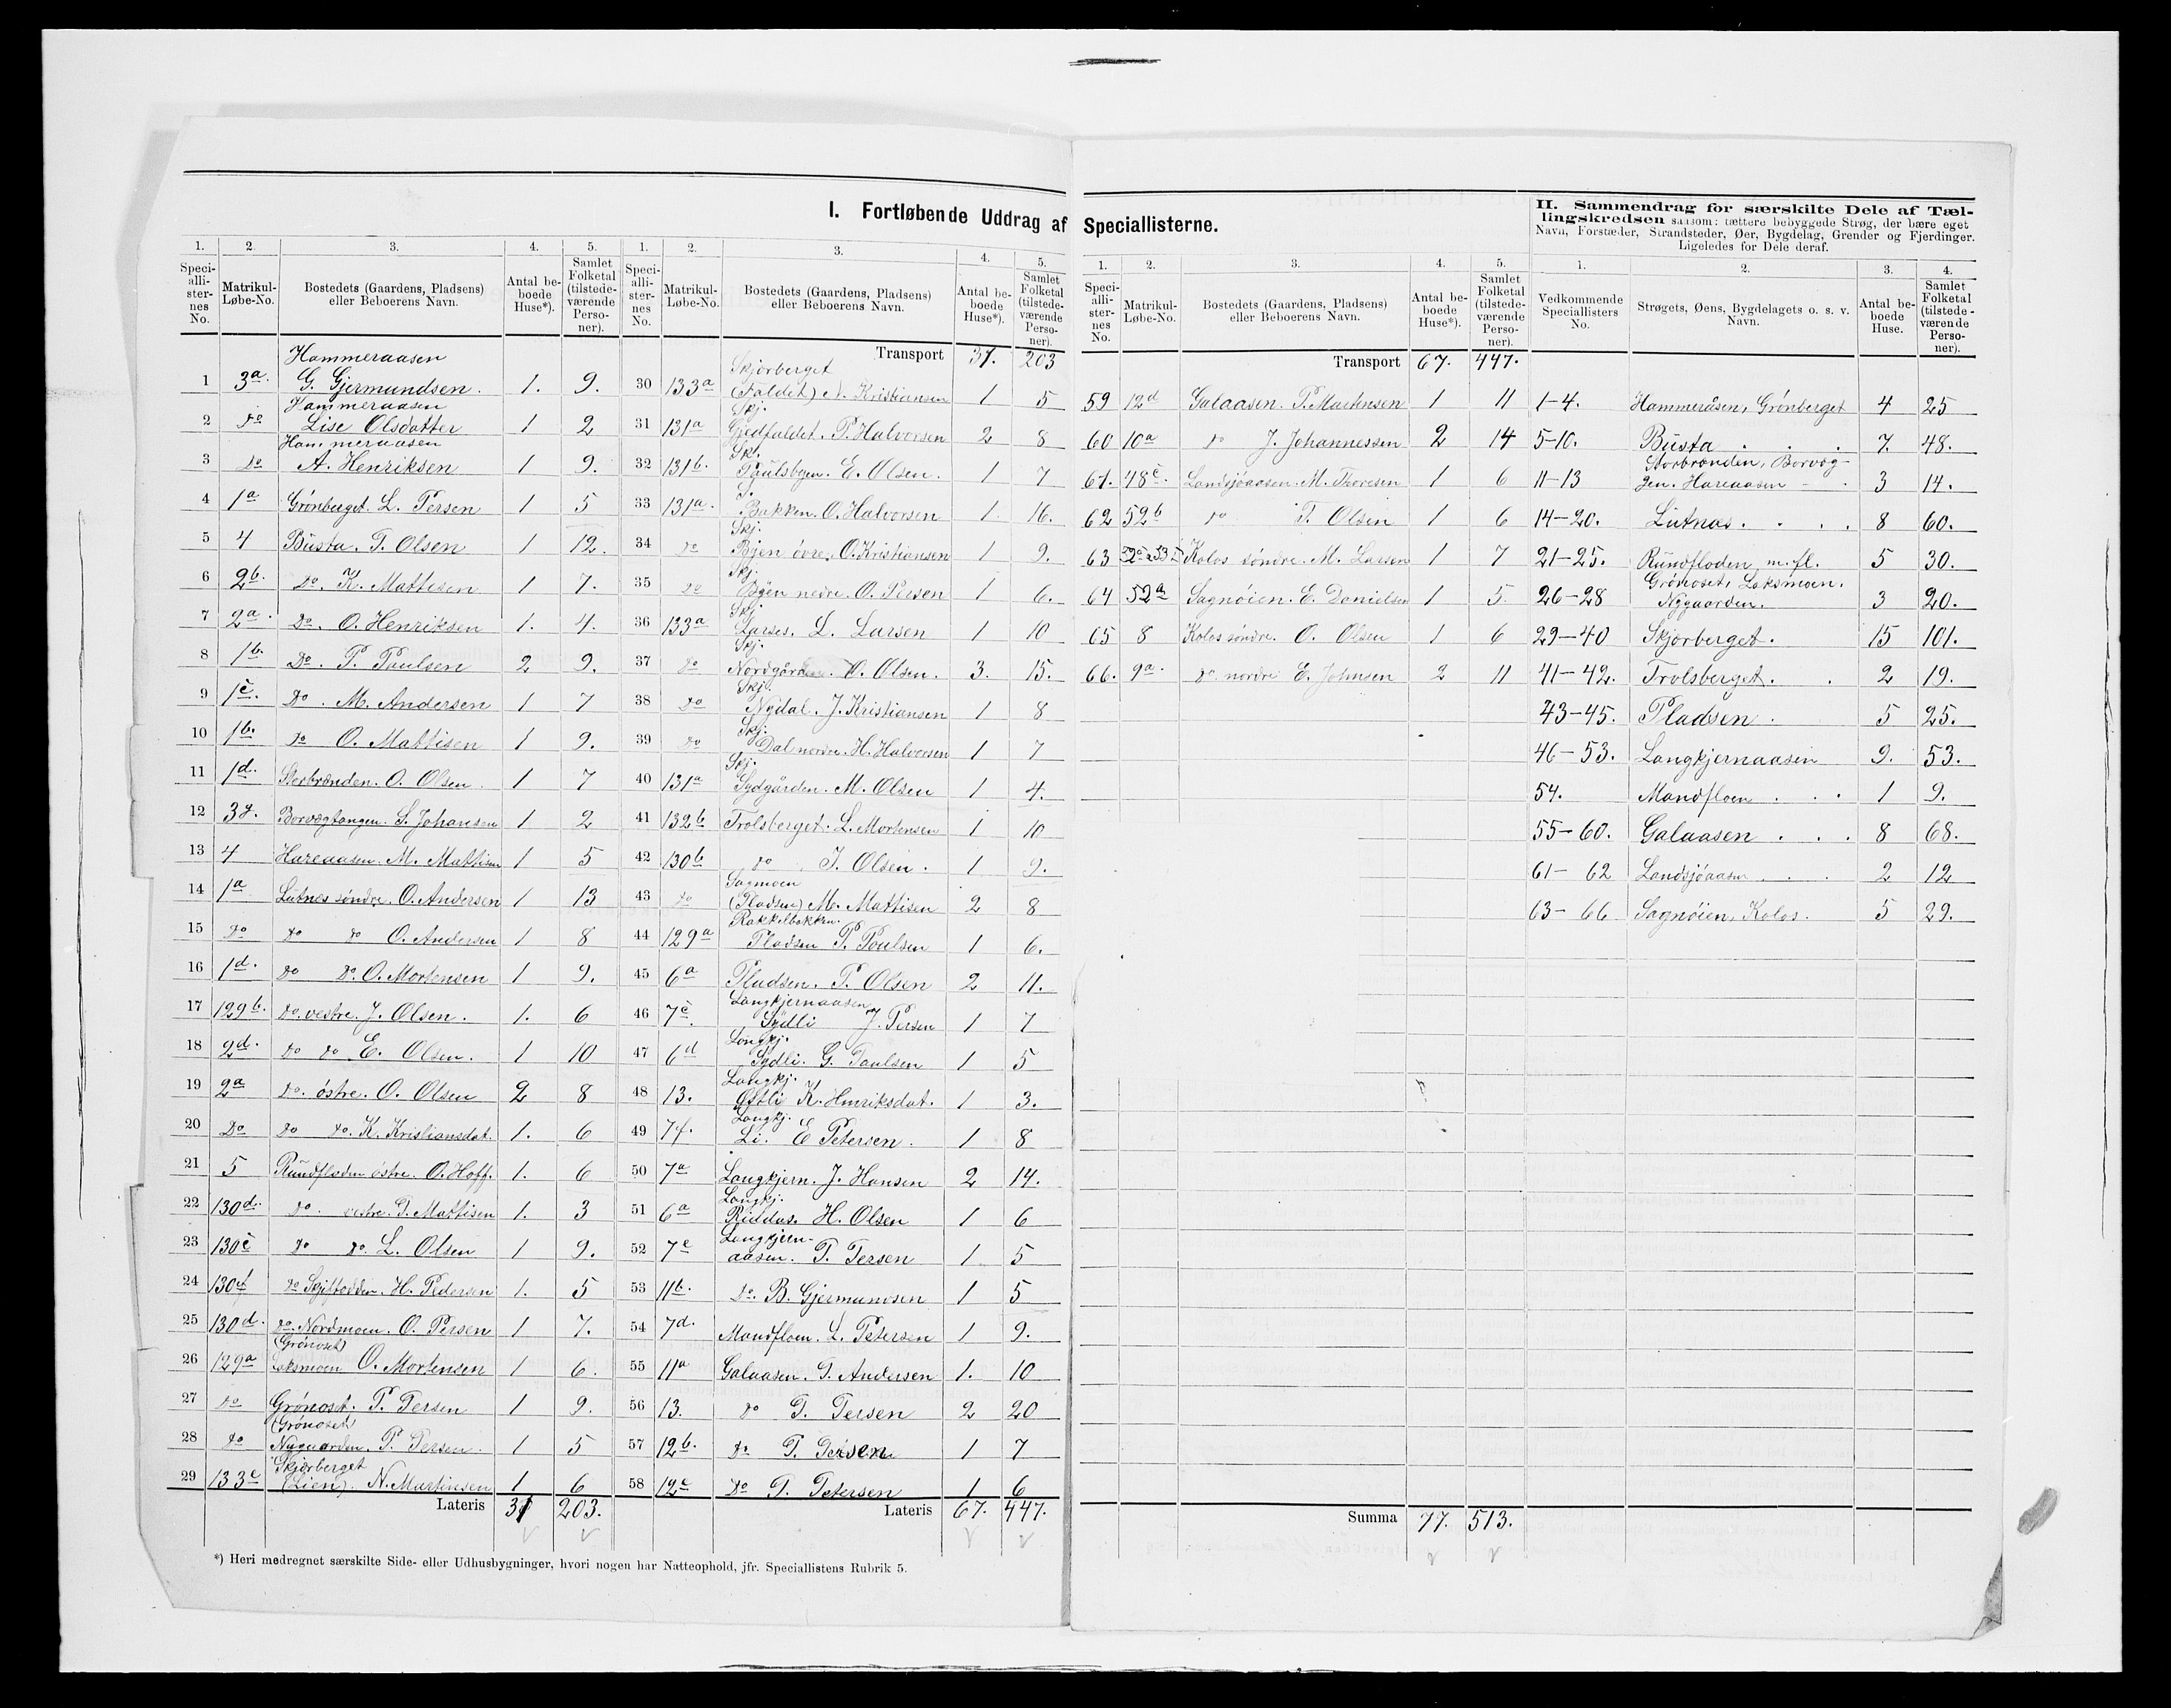 I. Fortløbende Uddrag af Speciallisterne.
II. Sammendrag for særskilte Dele af Tæl-
lingskredsen saasom: tættere bebyggede Strøg, der bære eget
Navn, Forstæder, Strandsteder, Øer, Bygdelag, Grender og Fjerdinger.
Ligeledes for Dele deraf.
1. 2. 3. 4. 5.
Speciallisternes No. Matrikul-Løbe-No. Bostedets (Gaardens, Pladsens) eller Beboerens Navn. Antal beboede Huse*). Samlet Folketal (tilstedeværende Personer).
Hammeraasen
1 3a. G. Gjermundsen. 1. 9.
Hammeraasen
2 do Lise Olsdatter 1 2
Hammeraasen
3 do A. Henriksen 1 9.
4 1a Grønberget. L. Persen 1 5
5 4 Busta. T. Olsen 1 12.
6 2b. do. K. Mattisen 1 7.
7 2a. do. O. Henriksen 1. 4.
8 1b. Do. P. Poulsen 2 9.
9 1c. Do. M. Andersen 1 7
10 1b. do O. Mattisen 1 9.
11 1d. Storbrænden. O. Olsen. 1 7
12 3d. Borvægtangen. S. Johansen 1 2
13 4 Hareaasen. M. Mattisen 1 5
14 1a Lutnes søndre. O. Andersen 1 13
15 do do do O. Andersen 1 8
16 1d. do do. O. Mortensen 1 9.
17 129b. do. vestre. J. Olsen. 1. 6
18 2d. do do E. Olsen. 1 10
19 2a do. østre. O. Olsen 2 8
20 Do do do. K. Kristiansdat. 1. 6
21 5 Rundfloden østre. O. Hoff. 1. 6
22 130d. do. vestre. T. Mattisen 1. 3
23 130c do do. L. Olsen 1 9.
24 130f do H. Pedersen 1. 5
25 130d. do. Nordmoen. O. Persen 1 7.
(Grønoset)
26 129a Loksmoen O. Mortensen 1 6.
27 do Grønoset. P. Persen 1 9.
(Grønoset)
28 do Nygaarden. P. Persen. 1 5
Skjorberget
29 133c (Lien). N. Martinsen 1 6
Lateris 31 203.
1. 2. 3. 4. 5.
Speciallisternes No. Matrikul-Løbe-No. Bostedets (Gaardens, Pladsens) eller Beboerens Navn. Antal beboede Huse*). Samlet Folketal (tilstedeværende Personer).
Transport 31. 203
Skjorberget
30 133a (Faldet) N. Kristiansen 1 5
Skj.
31 131a Gjedfaldet. P. Halvorsen 2 8
Skj.
32 131b. Poulsbyen. E. Olsen. 1 7
S.
33 131a. Bakken. O. Halvorsen 1 16.
Skj.
34 do Byen øvre. O. Kristiansen 1 9.
Skj.
35 do Byen nedre. O. Persen 1 6.
Skj
36 133a Larses. L. Larsen 1 10
Skj.
37 do Nordgården. O. Olsen. 3. 15.
Skj.
38 do Nydal. J. Kristiansen 1 8
Skj.
39 do Dal nordre. H. Halvorsen 1 7
Skj.
40 131a Sydgården. M. Olsen 1 4.
41 132b Trolsberget. L. Mortensen 1 10
42 130b do. J. Olsen. 1 9.
Sagmoen
43 do (Pladsen) M. Mattisen 2 8
Rakkelbakken.
44 129a Pladsen P. Poulsen 1 6.
45 6a Pladsen. P. Olsen 2 11.
Langkjernaasen
46 7c. Sydli J. Persen 1 7
Langkj.
47 6d Sydli. G. Paulsen 1 5
Langkj.
48 13. Østli K. Henriksdat. 1 3.
Langkj.
49 7f. Li. E Petersen. 1 8
50 7a Langkjern. J. Hansen 2 14.
Langkj.
51 6a Riddas. H. Olsen 1 6
Langkjern-
52 7e aasen. P. Persen 1 5
53 11b. do. B. Gjermundsen 1 5
54 7d. Mandfloen. L. Petersen 1 9.
55 11a Galaasen. T. Andersen 1. 10
56 13. do P. Persen 2 20
57 12b. do P. Persen 1 7
58 12c do P. Petersen 1 6
Lateris 67. 447.
1. 2. 3. 4. 5.
Speciallisternes No. Matrikul-Løbe-No. Bostedets (Gaardens, Pladsens) eller Beboerens Navn. Antal beboede Huse*). Samlet Folketal (tilstedeværende Personer).
Transport 67. 447.
59 12d Galaasen. P. Martensen 1 11
60 10a do J. Johannessen 2 14
61. 48c. Landsjøaasen. M. Thoresen 1 6
62 52b do T. Olsen 1 6
63 Kolos søndre. M. Larsen 1 7
64 52a Sagnøien. E. Danielsen 1 5.
65 8 Kolos søndre. O. Olsen 1 6
66. 9a. do nordre E. Johnsen 2 11
Summa 77. 513.
1. 2. 3. 4.
Vedkommende Speciallisters No. Strøgets, Øens, Bygdelagets o. s. v. Navn. Antal beboede Huse. Samlet Folketal (tilstedeværende Personer).
1-4. Hammeråsen, Grønberget 4 25
5-10. Busta 7. 48.
Storbrænden, Borvæg-
11-13 gen. Hareaasen 3 14.
14-20. Lutnes. 8 60.
21-25. Rundfloden m. fl. 5 30.
Grønoset, Loksmoen.
26-28 Nygaarden. 3 20.
29-40 Skjorberget. 15 101.
41-42. Trolsberget. 2 19.
43-45. Pladsen. 5 25.
46-53. Langkjernaasen 9. 53.
54. Mandfloen 1 9.
55-60. Galaasen 8 68.
61-62 Landsjøaasen 2 12
63-66 Sagnøien, Kolos. 5 29.
*) Heri medregnet særskilte Side- eller Udhusbygninger, hvori nogen har Natteophold, jfr. Speciallistens Rubrik 5.